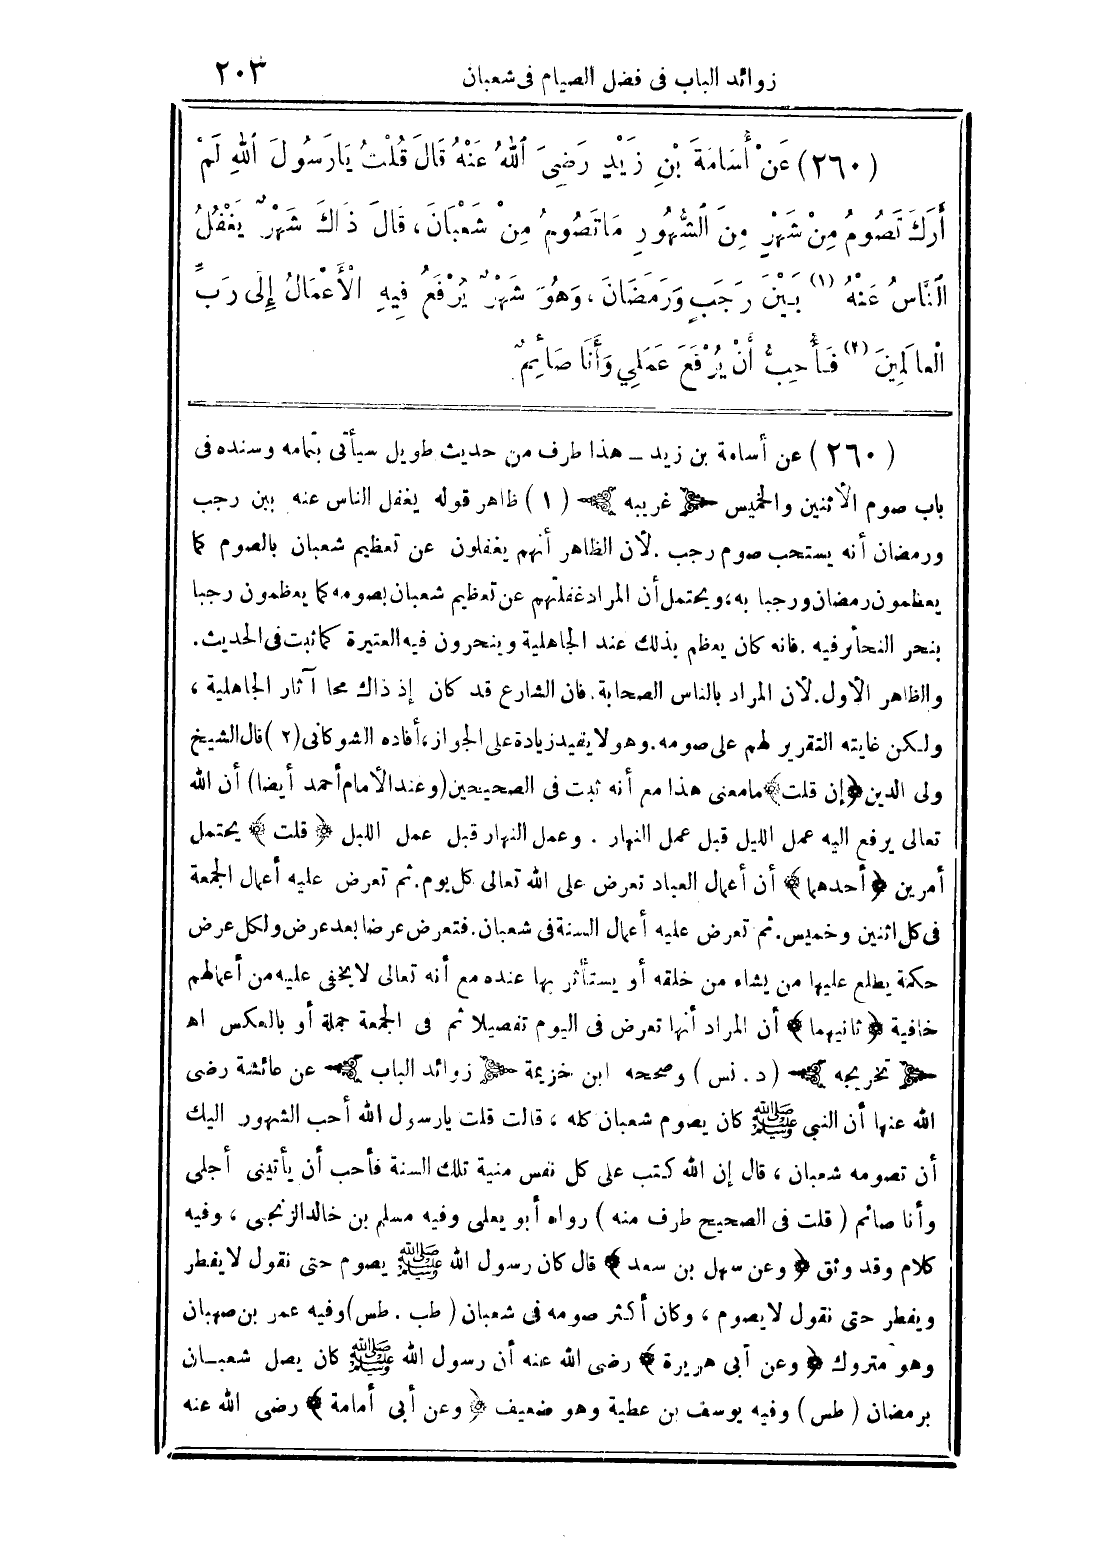 زوائد الباب فى فضل الصيام فى شعبان ٢٠٣
(٢٦٠) عَنْ أُسَامَةَ بْنِ زَيْدٍ رَضِىَ ٱللهُ عَنْهُ قَالَ قُلْتُ يَارَسُولَ ٱللهِ لَمْ
أَرَكَ تَصُومُ مِنْ شَهْرٍ مِنَ ٱلشُّهُورِ مَاتَصُومُ مِنْ شَعْبَانَ، قَالَ ذَاكَ شَهْرٌ يَغْفُلُ
ٱلنَّاسُ عَنْهُ (١) بَيْنَ رَجَبٍ وَرَمَضَانَ، وَهُوَ شَهْرٌ يُرْفَعُ فِيهِ الْأَعْمَالُ إِلَى رَبِّ
الْعالَمِينَ (٢) فَأُحِبُّ أَنْ يُرْفَعَ عَمَلِي وَأَنَا صَائِمٌ
(٢٦٠) عن أسامة بن زيد ــ هذا طرف من حديث طويل سيأتى بتمامه وسنده فى
باب صوم الأثنين والخميس ﴿ غريبه ﴾ (١) ظاهر قوله يغفل الناس عنه بين رجب
ورمضان أنه يستحب صوم رجب . لأن الظاهر أنهم يغفلون عن تعظيم شعبان بالصوم كما
يعظمون رمضان ورجبا به، ويحتمل أن المراد غفلتهم عن تعظيم شعبان بصومه كما يعظمون رجبا
بنحر النحائر فيه . فانه كان يعظم بذلك عند الجاهلية وينحرون فيه العتيرة كما ثبت فى الحديث.
والظاهر الأول. لأن المراد بالناس الصحابة. فان الشارع قد كان إذ ذاك محا آثار الجاهلية ،
ولكن غايته التقرير لهم على صومه. وهو لا يفيد زيادة على الجواز، أفاده الشوكانى (٢) قال الشيخ
ولى الدين ﴿إن قلت﴾ مامعنى هذا مع أنه ثبت فى الصحيحين (وعند الأمام أحمد أيضا) أن الله
تعالى يرفع اليه عمل الليل قبل عمل النهار . وعمل النهار قبل عمل الليل ﴿ قلت ﴾ يحتمل
أمرين ﴿ أحدهما ﴾ أن أعمال العباد تعرض على الله تعالى كل يوم. ثم تعرض عليه أعمال الجمعة
فى كل اثنين وخميس. ثم تعرض عليه أعمال السنة فى شعبان. فتعرض عرضا بعد عرض ولكل عرض
حكمة يطلع عليها من يشاء من خلقه أو يستأثر بها عنده مع أنه تعالى لا يخفى عليه من أعمالهم
خافية ﴿ ثانيهما ﴾ أن المراد أنها تعرض فى اليوم تفصيلا ثم فى الجمعة جملة أو بالعكس اهـ
﴿ تخريجه ﴾ (د . نس) وصححه ابن خزيمة ﴿ زوائد الباب ﴾ عن عائشة رضى
الله عنها أن النبى ﷺ كان يصوم شعبان كله ، قالت قلت يارسول الله أحب الشهور اليك
أن تصومه شعبان ، قال إن الله كتب على كل نفس منية تلك السنة فأحب أن يأتينى أجلى
وأنا صائم ( قلت فى الصحيح طرف منه ) رواه أبو يعلى وفيه مسلم بن خالد الزنجى ، وفيه
كلام وقد وثق ﴿ وعن سهل بن سعد ﴾ قال كان رسول الله ﷺ يصوم حتى نقول لا يفطر
ويفطر حتى نقول لا يصوم ، وكان أكثر صومه فى شعبان ( طب . طس) وفيه عمر بن صهبان
وهو متروك ﴿ وعن أبى هريرة ﴾ رضى الله عنه أن رسول الله ﷺ كان يصل شعبــان
برمضان ( طس ) وفيه يوسف بن عطية وهو ضعيف ﴿ وعن أبى أمامة ﴾ رضى الله عنه